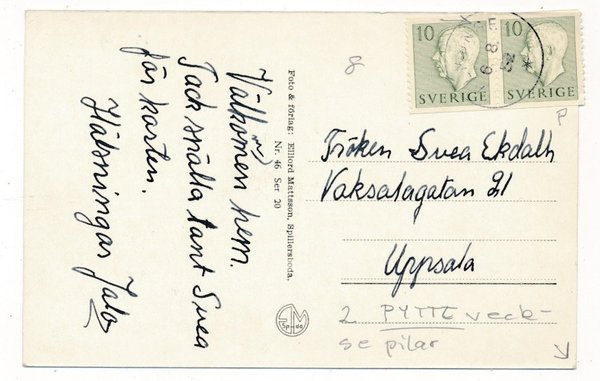 Välkomen hem.
Tack snälla tant Svea
för korten.
Hälsningar
Foto & förlag: Elliord Mattsson, Spillersboda.
Nr. 46 Ser 20
10 10
SVERIGE SVERIGE
8
P
Fröken Svea Ekdahl
Vaksalagatan 21
Uppsala
2 PYTTE veck-
se pilar